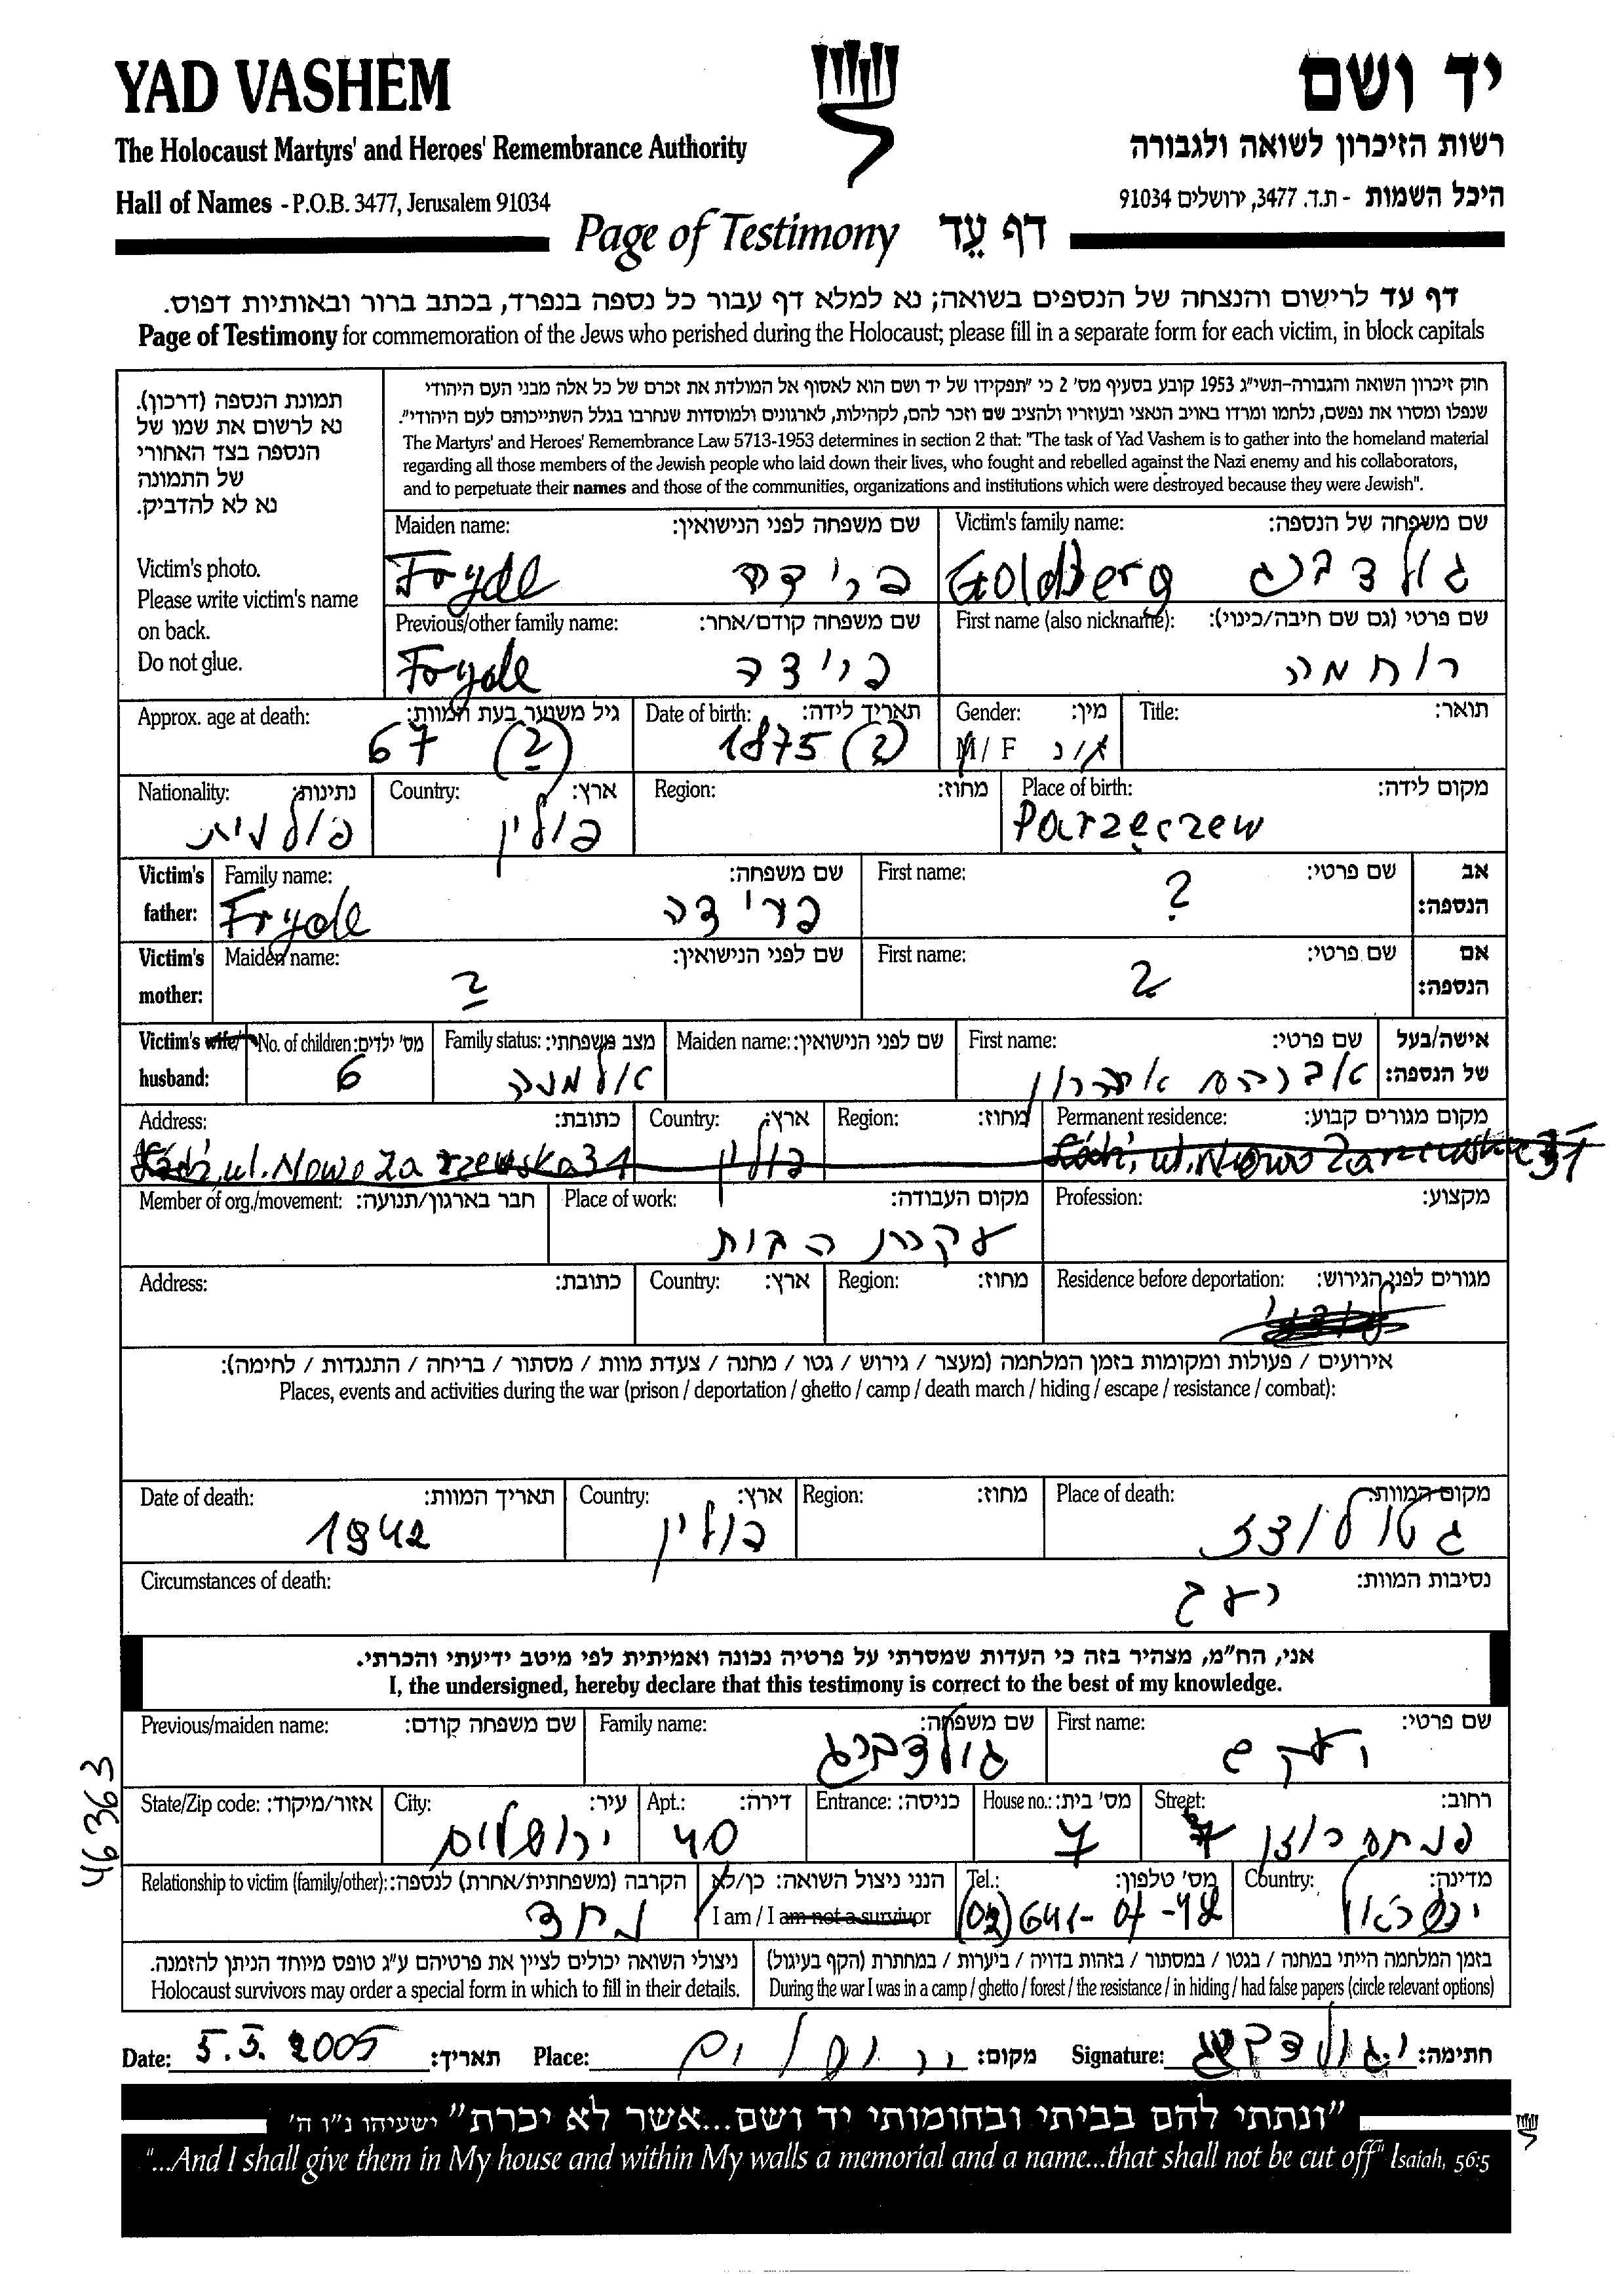 YAD VASHEM
יד ושם
The Holocaust Martyrs' and Heroes' Remembrance Authority
רשות הזיכרון לשואה ולגבורה
Hall of Names - P.O.B. 3477, Jerusalem 91034
היכל השמות - ת.ד. 3477, ירושלים 91034
Page of Testimony דף עֵד
דף עד לרישום והנצחה של הנספים בשואה; נא למלא דף עבור כל נספה בנפרד, בכתב ברור ובאותיות דפוס.
Page of Testimony for commemoration of the Jews who perished during the Holocaust; please fill in a separate form for each victim, in block capitals
תמונת הנספה (דרכון).
נא לרשום את שמו של
הנספה בצד האחורי
של התמונה
נא לא להדביק.
Victim's photo.
Please write victim's name
on back.
Do not glue.
חוק זיכרון השואה והגבורה-תשי"ג 1953 קובע בסעיף מס' 2 כי "תפקידו של יד ושם הוא לאסוף אל המולדת את זכרם של כל אלה מבני העם היהודי
שנפלו ומסרו את נפשם, נלחמו ומרדו באויב הנאצי ובעוזריו ולהציב שם וזכר להם, לקהילות, לארגונים ולמוסדות שנחרבו בגלל השתייכותם לעם היהודי".
The Martyrs' and Heroes' Remembrance Law 5713-1953 determines in section 2 that: "The task of Yad Vashem is to gather into the homeland material
regarding all those members of the Jewish people who laid down their lives, who fought and rebelled against the Nazi enemy and his collaborators,
and to perpetuate their names and those of the communities, organizations and institutions which were destroyed because they were Jewish".
Maiden name: שם משפחה לפני הנישואין:
Fryde פרידה
Victim's family name: שם משפחה של הנספה:
Goldberg גולדברג
Previous/other family name: שם משפחה קודם/אחר:
Fryde פרידה
First name (also nickname): שם פרטי (גם שם חיבה/כינוי):
רוחמה
Approx. age at death: גיל משוער בעת המוות:
67 (?)
Date of birth: תאריך לידה:
1875 (?)
Gender: מין:
M / F ז/נ
Title: תואר:
Nationality: נתינות:
פולנית
Country: ארץ:
פולין
Region: מחוז:
Place of birth: מקום לידה:
Parzęczew
Victim's father: אב הנספה:
Family name: שם משפחה:
Fryde פרידה
First name: שם פרטי:
?
Victim's mother: אם הנספה:
Maiden name: שם לפני הנישואין:
?
First name: שם פרטי:
?
Victim's wife/ husband: אישה/בעל של הנספה:
No. of children: מס' ילדים:
6
Family status: מצב משפחתי:
אלמנה
Maiden name: שם לפני הנישואין:
First name: שם פרטי:
אברהם אהרון
Address: כתובת:
Łódź, ul. Nowo Zarzewska 31
Country: ארץ:
פולין
Region: מחוז:
Permanent residence: מקום מגורים קבוע:
Łódź, ul. Nowo Zarzewska 31
Member of org./movement: חבר בארגון/תנועה:
Place of work: מקום העבודה:
עקרת הבית
Profession: מקצוע:
Address: כתובת:
Country: ארץ:
Region: מחוז:
Residence before deportation: מגורים לפני הגירוש:
אירועים / פעולות ומקומות בזמן המלחמה (מעצר / גירוש / גטו / מחנה / צעדת מוות / מסתור / בריחה / התנגדות / לחימה):
Places, events and activities during the war (prison / deportation / ghetto / camp / death march / hiding / escape / resistance / combat):
Date of death: תאריך המוות:
1942
Country: ארץ:
פולין
Region: מחוז:
Place of death: מקום המוות:
גטו לודז
Circumstances of death: נסיבות המוות:
רעב
אני, הח"מ, מצהיר בזה כי העדות שמסרתי על פרטיה נכונה ואמיתית לפי מיטב ידיעתי והכרתי.
I, the undersigned, hereby declare that this testimony is correct to the best of my knowledge.
Previous/maiden name: שם משפחה קודם:
Family name: שם משפחה:
גולדברג
First name: שם פרטי:
יעקב
46363
State/Zip code: אזור/מיקוד:
City: עיר:
ירושלים
Apt.: דירה:
40
Entrance: כניסה:
House no.: מס' בית:
7
Street: רחוב:
פנחס רוזן 7
Relationship to victim (family/other): הקרבה (משפחתית/אחרת) לנספה:
נכד
הנני ניצול השואה: כן/לא
I am / I am not a survivor
Tel.: מס' טלפון:
(02) 641-07-42
Country: מדינה:
ישראל
ניצולי השואה יכולים לציין את פרטיהם ע"ג טופס מיוחד הניתן להזמנה.
Holocaust survivors may order a special form in which to fill in their details.
בזמן המלחמה הייתי במחנה / בגטו / במסתור / בזהות בדויה / ביערות / במחתרת (הקף בעיגול)
During the war I was in a camp / ghetto / forest / the resistance / in hiding / had false papers (circle relevant options)
Date: 5.5.2005 תאריך:
Place: ירושלים מקום:
Signature: י. גולדברג חתימה:
"ונתתי להם בביתי ובחומותי יד ושם...אשר לא יכרת" ישעיהו נ"ו ה'
"...And I shall give them in My house and within My walls a memorial and a name...that shall not be cut off" Isaiah, 56:5